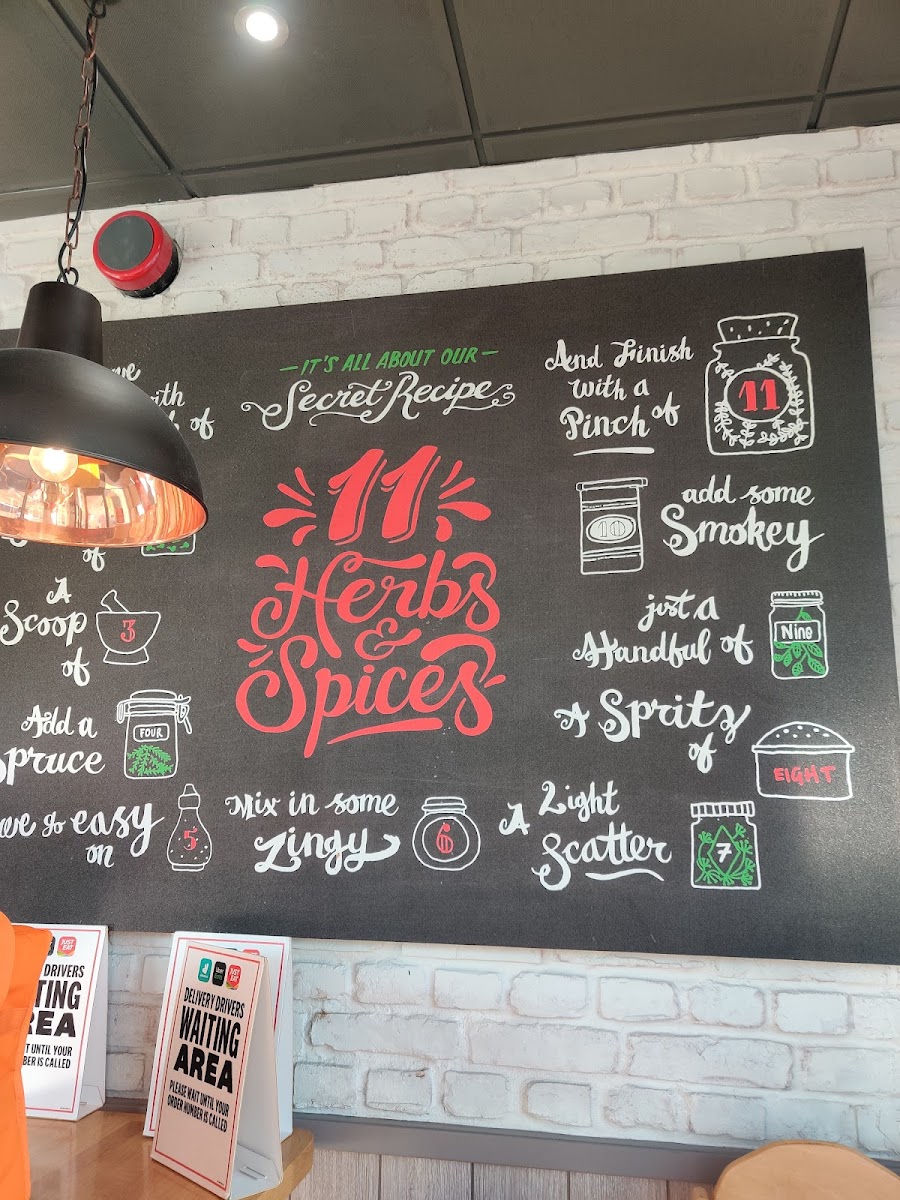 — IT'S ALL ABOUT OUR —
Secret Recipe
11
Herbs
&
Spices
of
of
A
Scoop
of
3
Add a
Spruce
FOUR
we go easy
on
5
Mix in some
Zingy
6
A Light
Scatter
7
A Spritz
of
EIGHT
just a
Handful of
Nine
add some
Smokey
10
And Finish
with a
Pinch of
11
JUST EAT
DRIVERS
UNTIL YOUR
IS CALLED
Uber Eats
JUST EAT
DELIVERY DRIVERS
WAITING
AREA
PLEASE WAIT UNTIL YOUR
ORDER NUMBER IS CALLED